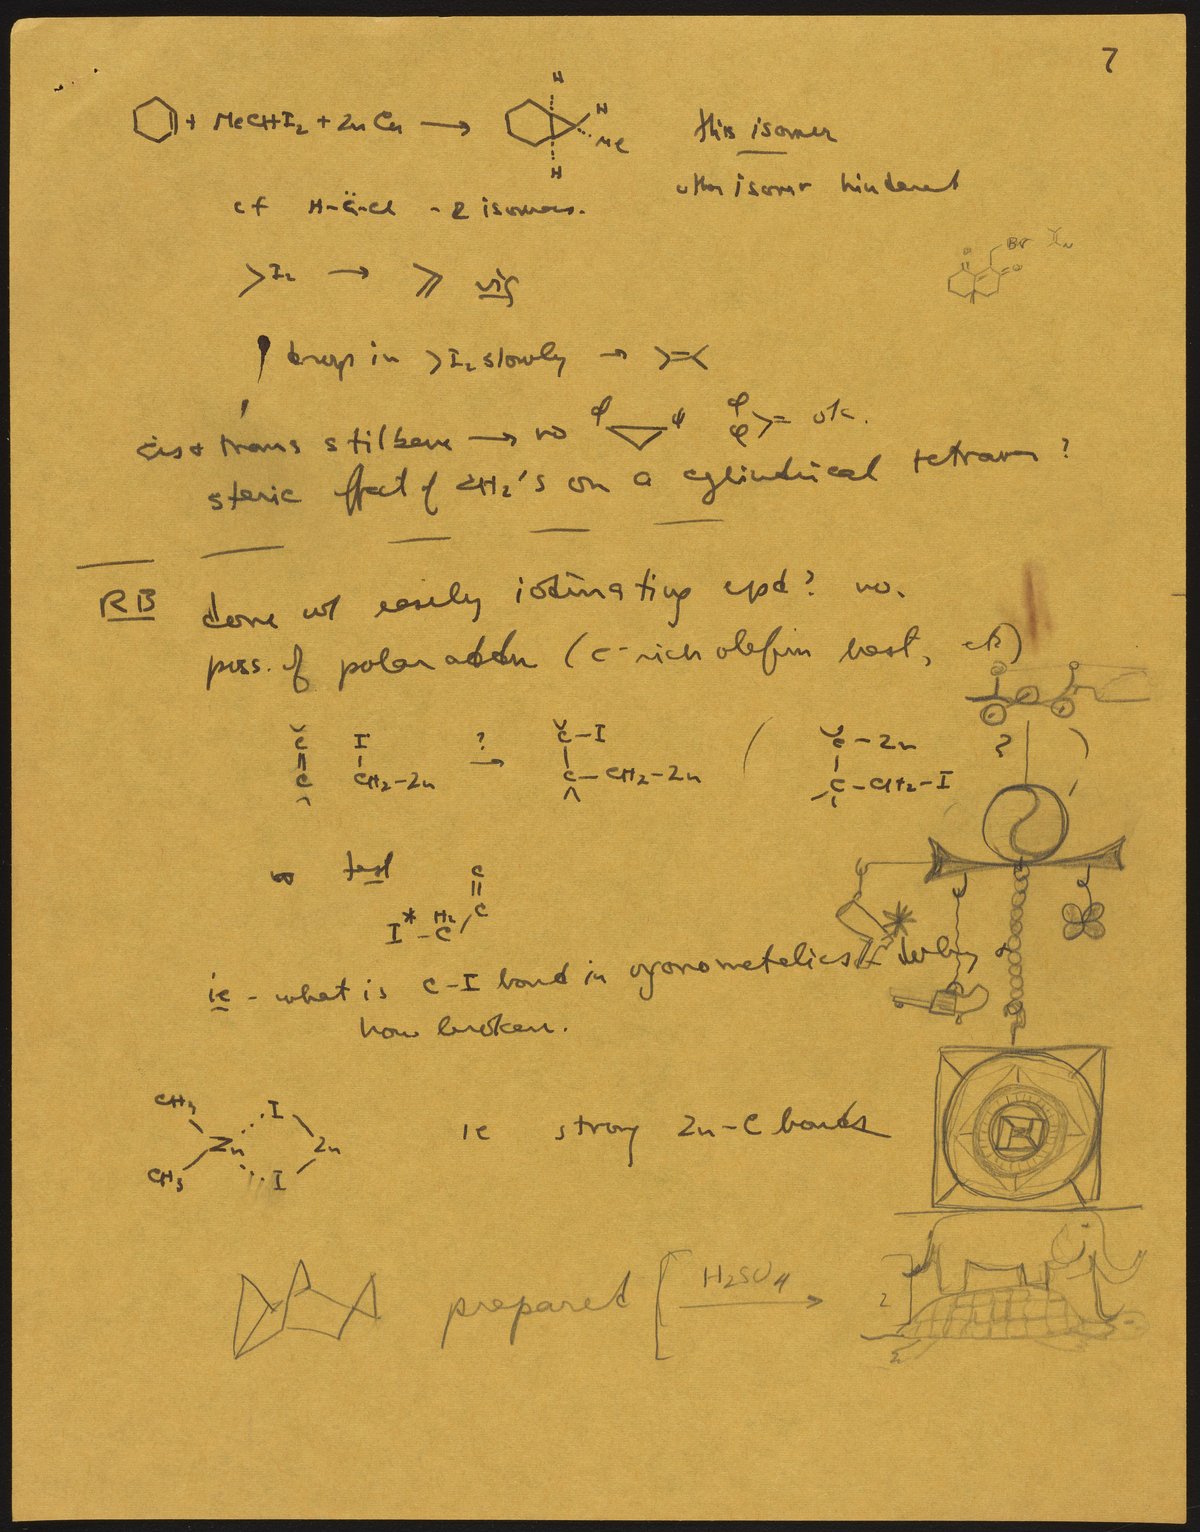 7
+ MeCHI2 + Zn Cu → H H Me H this isomer
other isomer hindered
cf H-C̈-Cl - 2 isomers.
Br Zn
O O
>I2 → vig
! drop in >I2 slowly → >=<
cis + trans stilbene → no φ φ φ φ >= ok.
steric effect of CH2's on a cylindrical ?
RB done w/ easily iodinating cpd? no.
poss. of polar addn (e⁻ rich olefin best, etc)
C I ? C-I ( C-Zn ? )
C CH2-Zn → C-CH2-Zn C-CH2-I
test C
C
I* - C H2
ie - what is C-I bond in organometallics &
how broken.
CH3 I
Zn Zn ie strong Zn-C bonds
CH3 I
prepared [ H2SO4 →